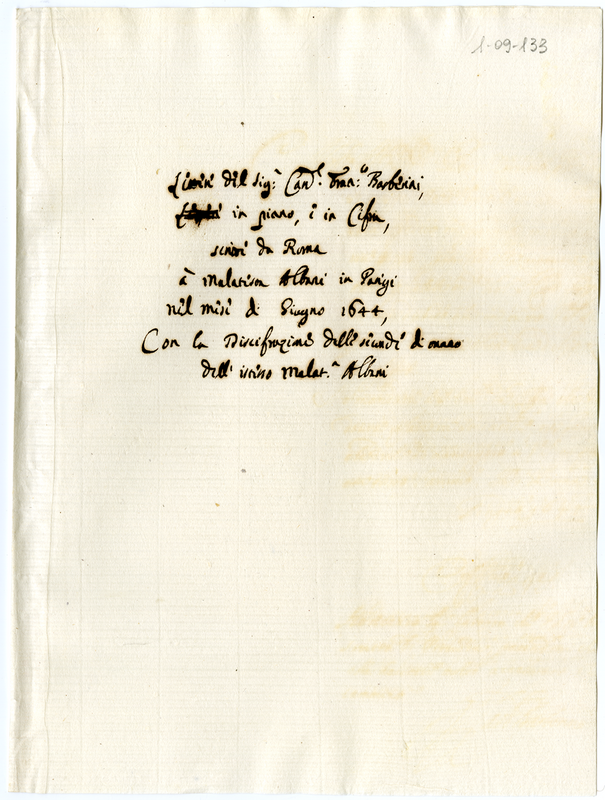 1-09-133
Lettere del Sig.r Card.l Fran.co Barberini,
in piano, e in Cifra,
scritte da Roma
à Malatesta Albani in Parigi
nel mese di Giugno 1644,
Con la Discifrazione delle seconde di mano
dell' istesso Malat.a Albani